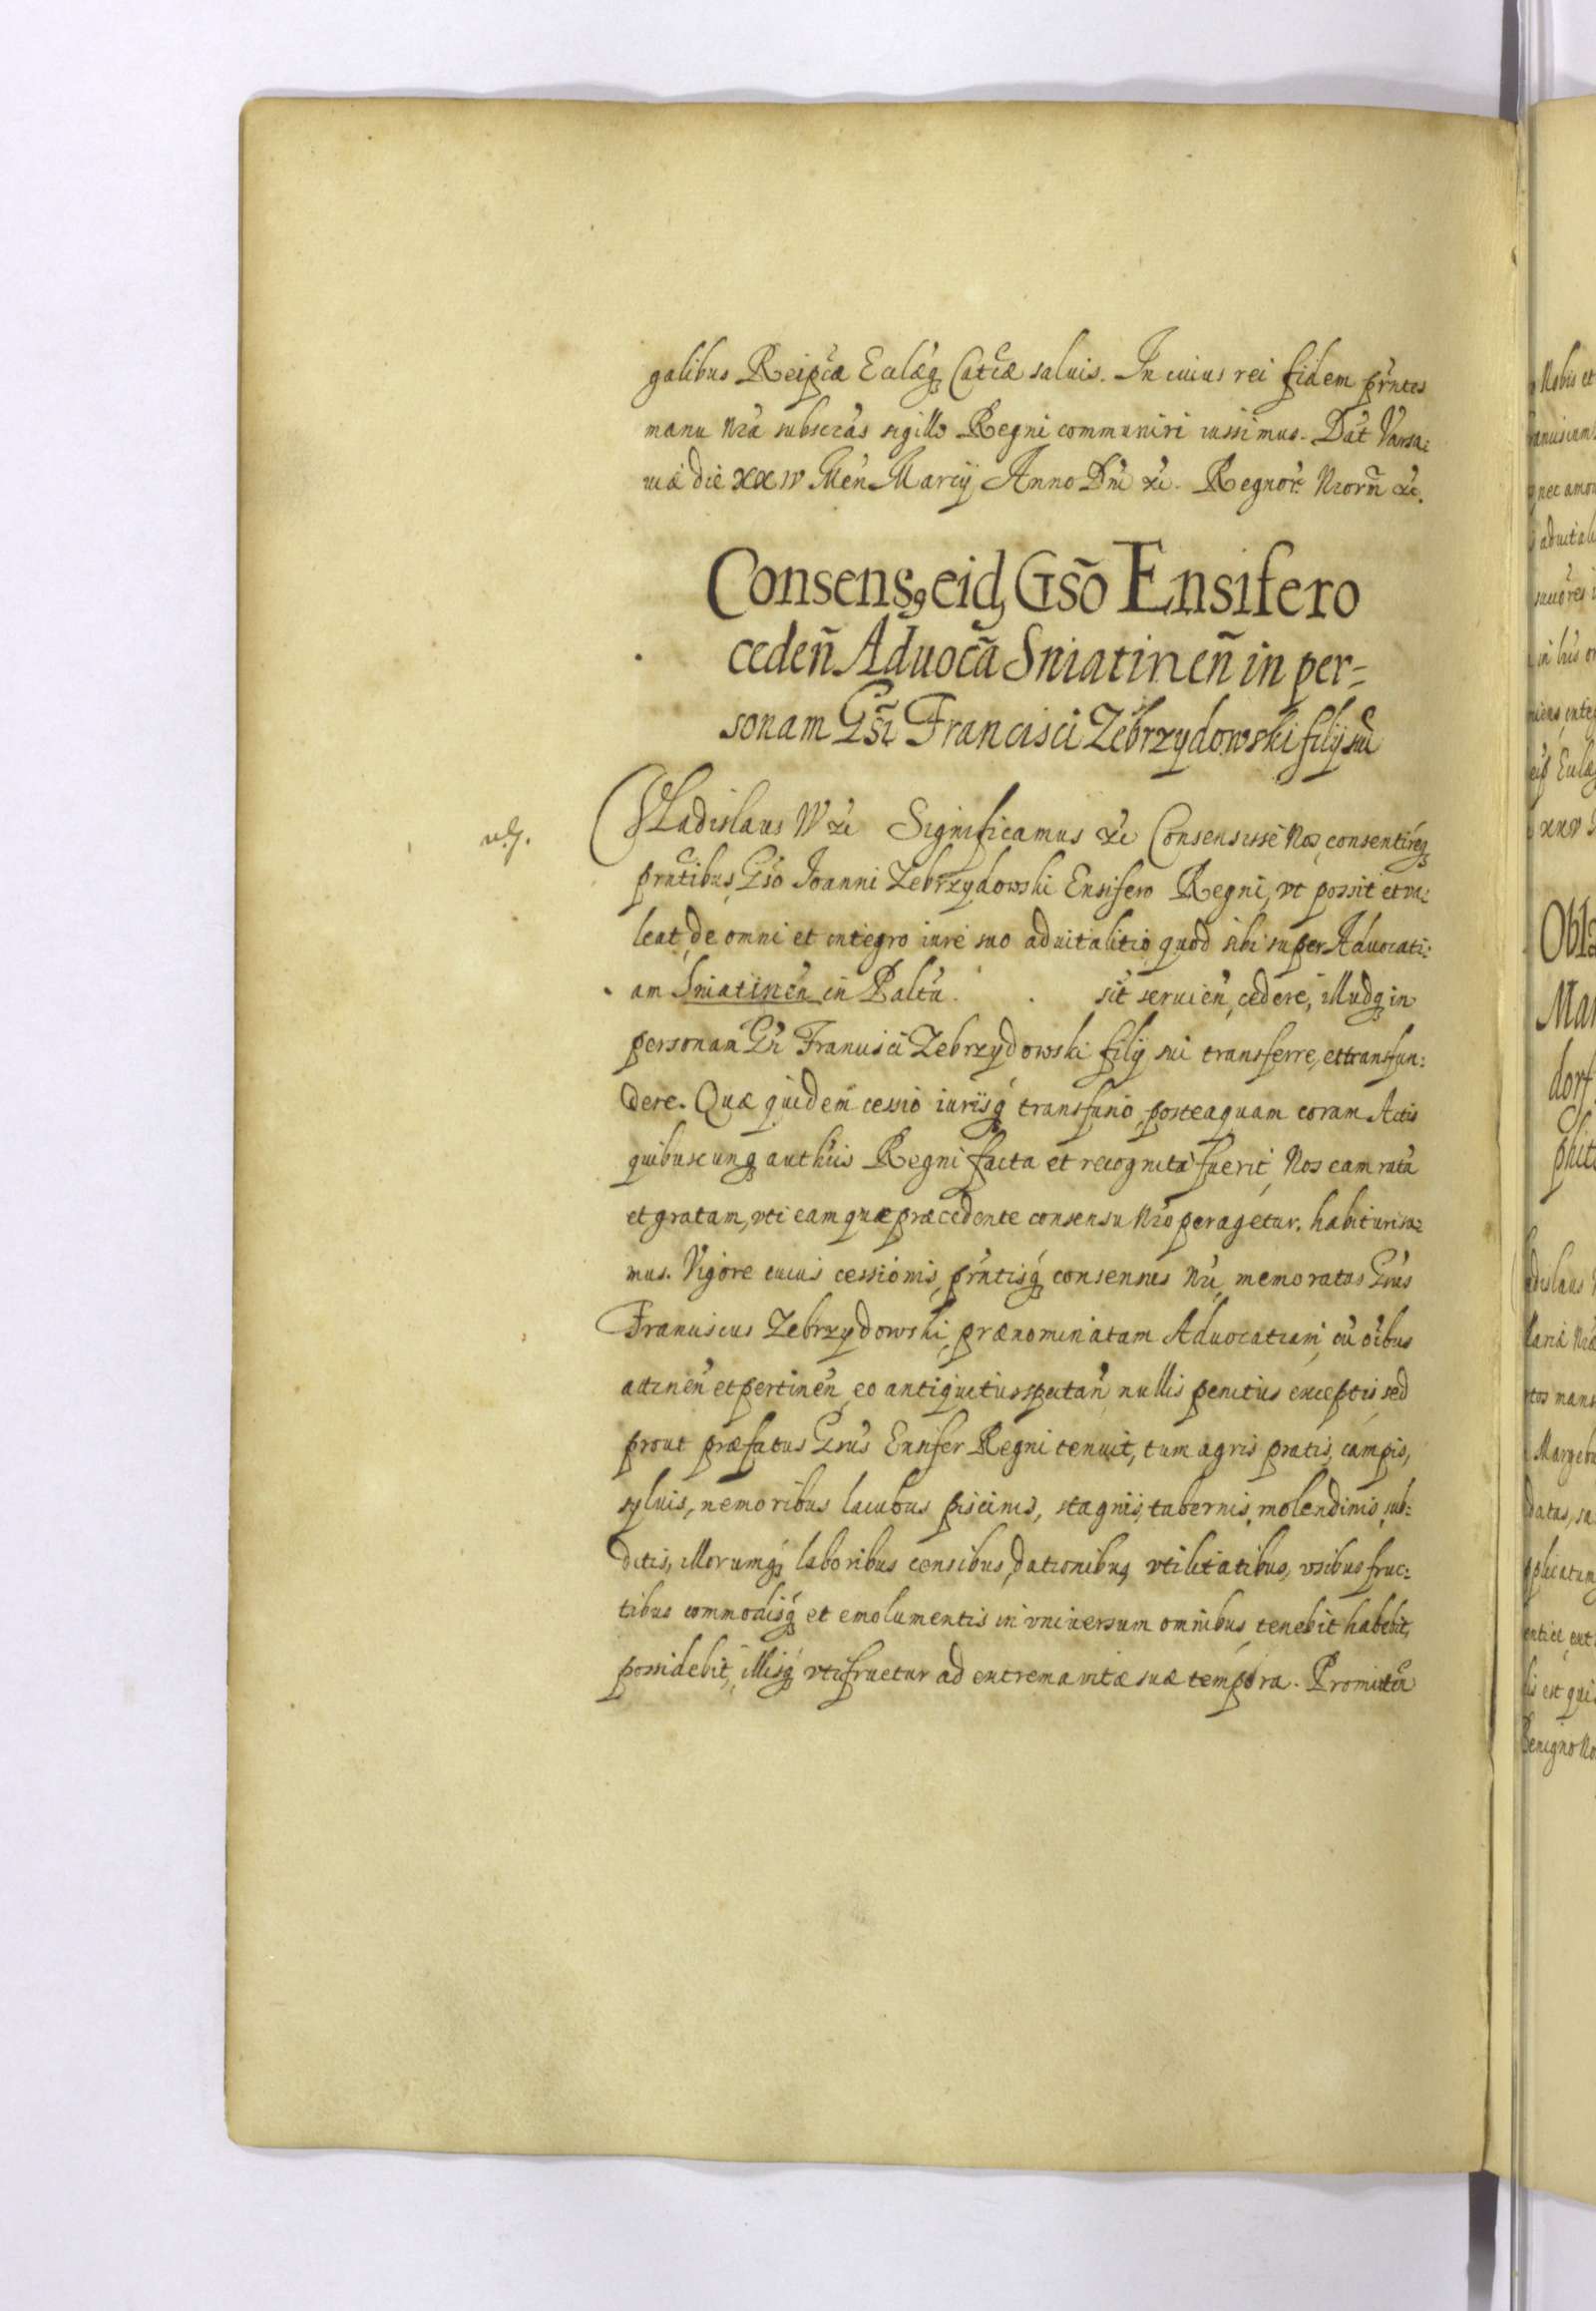 galibus Reipcæ Eccl̃æq Catcæ saluis. In cuius rei fidem pr̃ntes
manu Nrã subscr̃as sigillo Regni communiri iussimus. Dat Varsa:
uiæ die XXIV Men Marcij Anno Dni &c. Regnor̃ Nrorũ &c.
Consensꝯ eidꝫ Gsõ Ensifero
cedeñ Aduocã Sniatineñ in per=
sonam Gsĩ Francisci Zebrzydowski filij sui
Vladislaus IV &c Significamus &c Consensisse Nos, consentireq
prntibus, Gso Ioanni Zebrzydowski Ensifero Regni, vt possit et va:
leat, de omni et integro iure suo aduitalitio, quod sibi super Aduocati:
am Sniatinen in Paltu. . sit seruien, cedere, illudq in
personam Gsi Francisci Zebrzydowski filij sui transferre, et transfun:
dere. Quæ quidem cessio iurisq transfusio, posteaquam coram Actis
quibuscunq authcis Regni facta et recognita fuerit, Nos eam ratã
et gratam, vti eam quæ præcedente consensu Nro peragetur, habituri su:
mus. Vigore cuius cessionis, prntisq consensus Nri, memoratus Gsus
Franciscus Zebrzydowski, prænominatam Aduocatiam, cũ oibus
attinen et pertinen, eo antiquitus spectan, nullis penitus exceptis, sed
prout præfatus Gsus Ensifer Regni tenuit, tum agris, pratis, campis,
syluis, nemoribus lacubus piscinis, stagnis, tabernis, molendinis, sub:
ditis, illorumq laboribus censibus, dationibus, vtilitatibus, vsibus fruc:
tibus commodisq et emolumentis in vniuersum omnibus, tenebit habebit,
possidebit, illisq vtifruetur ad extrema vitæ suæ tempora. Promitten